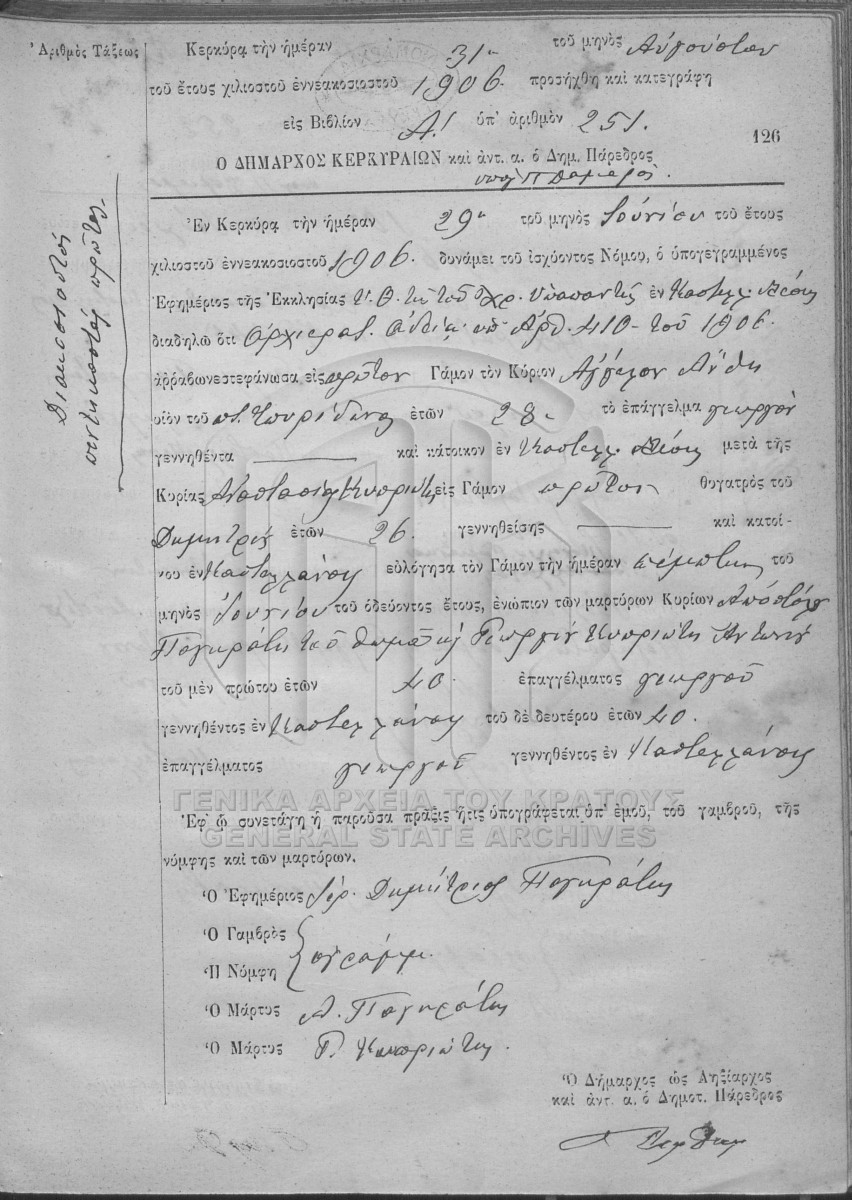 Ἀριθμὸς Τάξεως
Διακοσιοστὸς
πεντηκοστὸς πρῶτος
Κερκύρα τὴν ἡμέραν 31η τοῦ μηνὸς Αὐγούστου
τοῦ ἔτους χιλιοστοῦ ἐννεακοσιοστοῦ 1906. προσήχθη καὶ κατεγράφη
εἰς Βιβλίον Α! ὑπ' ἀριθμὸν 251.
126
Ο ΔΗΜΑΡΧΟΣ ΚΕΡΚΥΡΑΙΩΝ καὶ ἀντ. α. ὁ Δημ. Πάρεδρος
Ἐν Κερκύρᾳ τὴν ἡμέραν 29η τοῦ μηνὸς Ἰουνίου τοῦ ἔτους
χιλιοστοῦ ἐννεακοσιοστοῦ 1906. δυνάμει τοῦ ἰσχύοντος Νόμου, ὁ ὑπογεγραμμένος
Ἐφημέριος τῆς Ἐκκλησίας Υ. Θ. τῆς τοῦ Χρ. Ὑπαπαντῆς ἐν Καστελλ. Μέσης
διαδηλῶ ὅτι Ἀρχιερατ. ἀδείᾳ ὑπ' Ἀρθ. 410 - τοῦ 1906.
ἀῤῥαβωνεστεφάνωσα εἰς πρῶτον Γάμον τὸν Κύριον Ἀγγελον
υἱὸν τοῦ π. Σπυρίδωνος ἐτῶν 28 τὸ ἐπάγγελμα γεωργὸν
γεννηθέντα καὶ κάτοικον ἐν Καστελλ. Μέσης μετὰ τῆς
Κυρίας Ἀναστασίας Κυπριώτη εἰς Γάμον πρῶτον θυγατρὸς τοῦ
Δημητρίου ἐτῶν 26. γεννηθείσης καὶ κατοί-
κου ἐν Καστελλάνοις εὐλόγησα τὸν Γάμον τὴν ἡμέραν πέμπτην τοῦ
μηνὸς Ἰουνίου τοῦ ὁδεύοντος ἔτους, ἐνώπιον τῶν μαρτύρων Κυρίων Ἀποστόλου
Παγκράτη τοῦ Θωμᾶ καὶ Γεωργίου Κυπριώτη Ἀντωνίου
τοῦ μὲν πρώτου ἐτῶν 40. ἐπαγγέλματος γεωργοῦ
γεννηθέντος ἐν Καστελλάνοις τοῦ δὲ δευτέρου ἐτῶν 40.
ἐπαγγέλματος γεωργοῦ γεννηθέντος ἐν Καστελλάνοις
ΓΕΝΙΚΑ ΑΡΧΕΙΑ ΤΟΥ ΚΡΑΤΟΥΣ
Ἐφ' ᾧ συνετάγη ἡ παροῦσα πρᾶξις ἥτις ὑπογράφεται ὑπ' ἐμοῦ, τοῦ γαμβροῦ, τῆς
GENERAL STATE ARCHIVES
νύμφης καὶ τῶν μαρτύρων.
Ὁ Ἐφημέριος Ἱερ. Δημήτριος Παγκράτης
Ὁ Γαμβρὸς
ἀγράμμ.
Ἡ Νύμφη
Ὁ Μάρτυς Α. Παγκράτης
Ὁ Μάρτυς Γ. Κυπριώτης.
Ὁ Δήμαρχος ὡς Ληξίαρχος
καὶ ἀντ. α. ὁ Δημοτ. Πάρεδρος